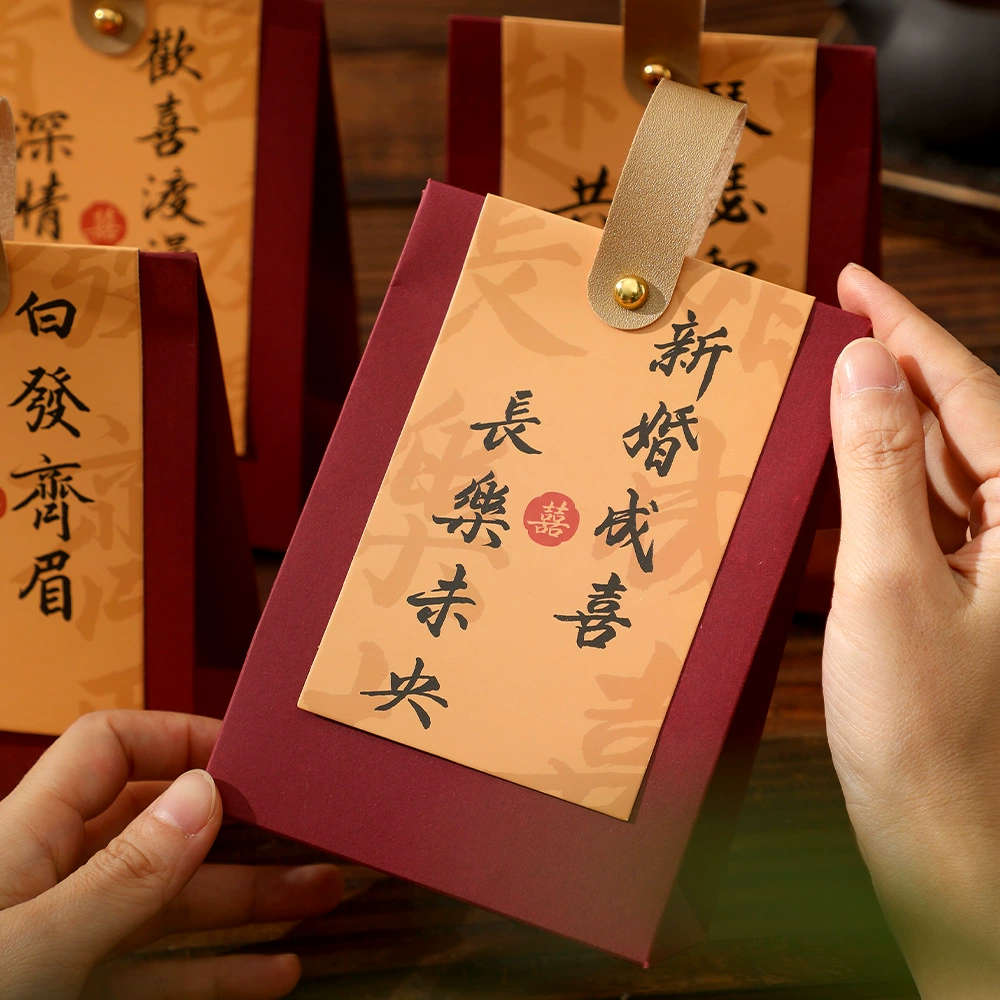 新婚成喜
長樂未央
囍
歡喜渡
深情
囍
白發齊眉
琴瑟和
共